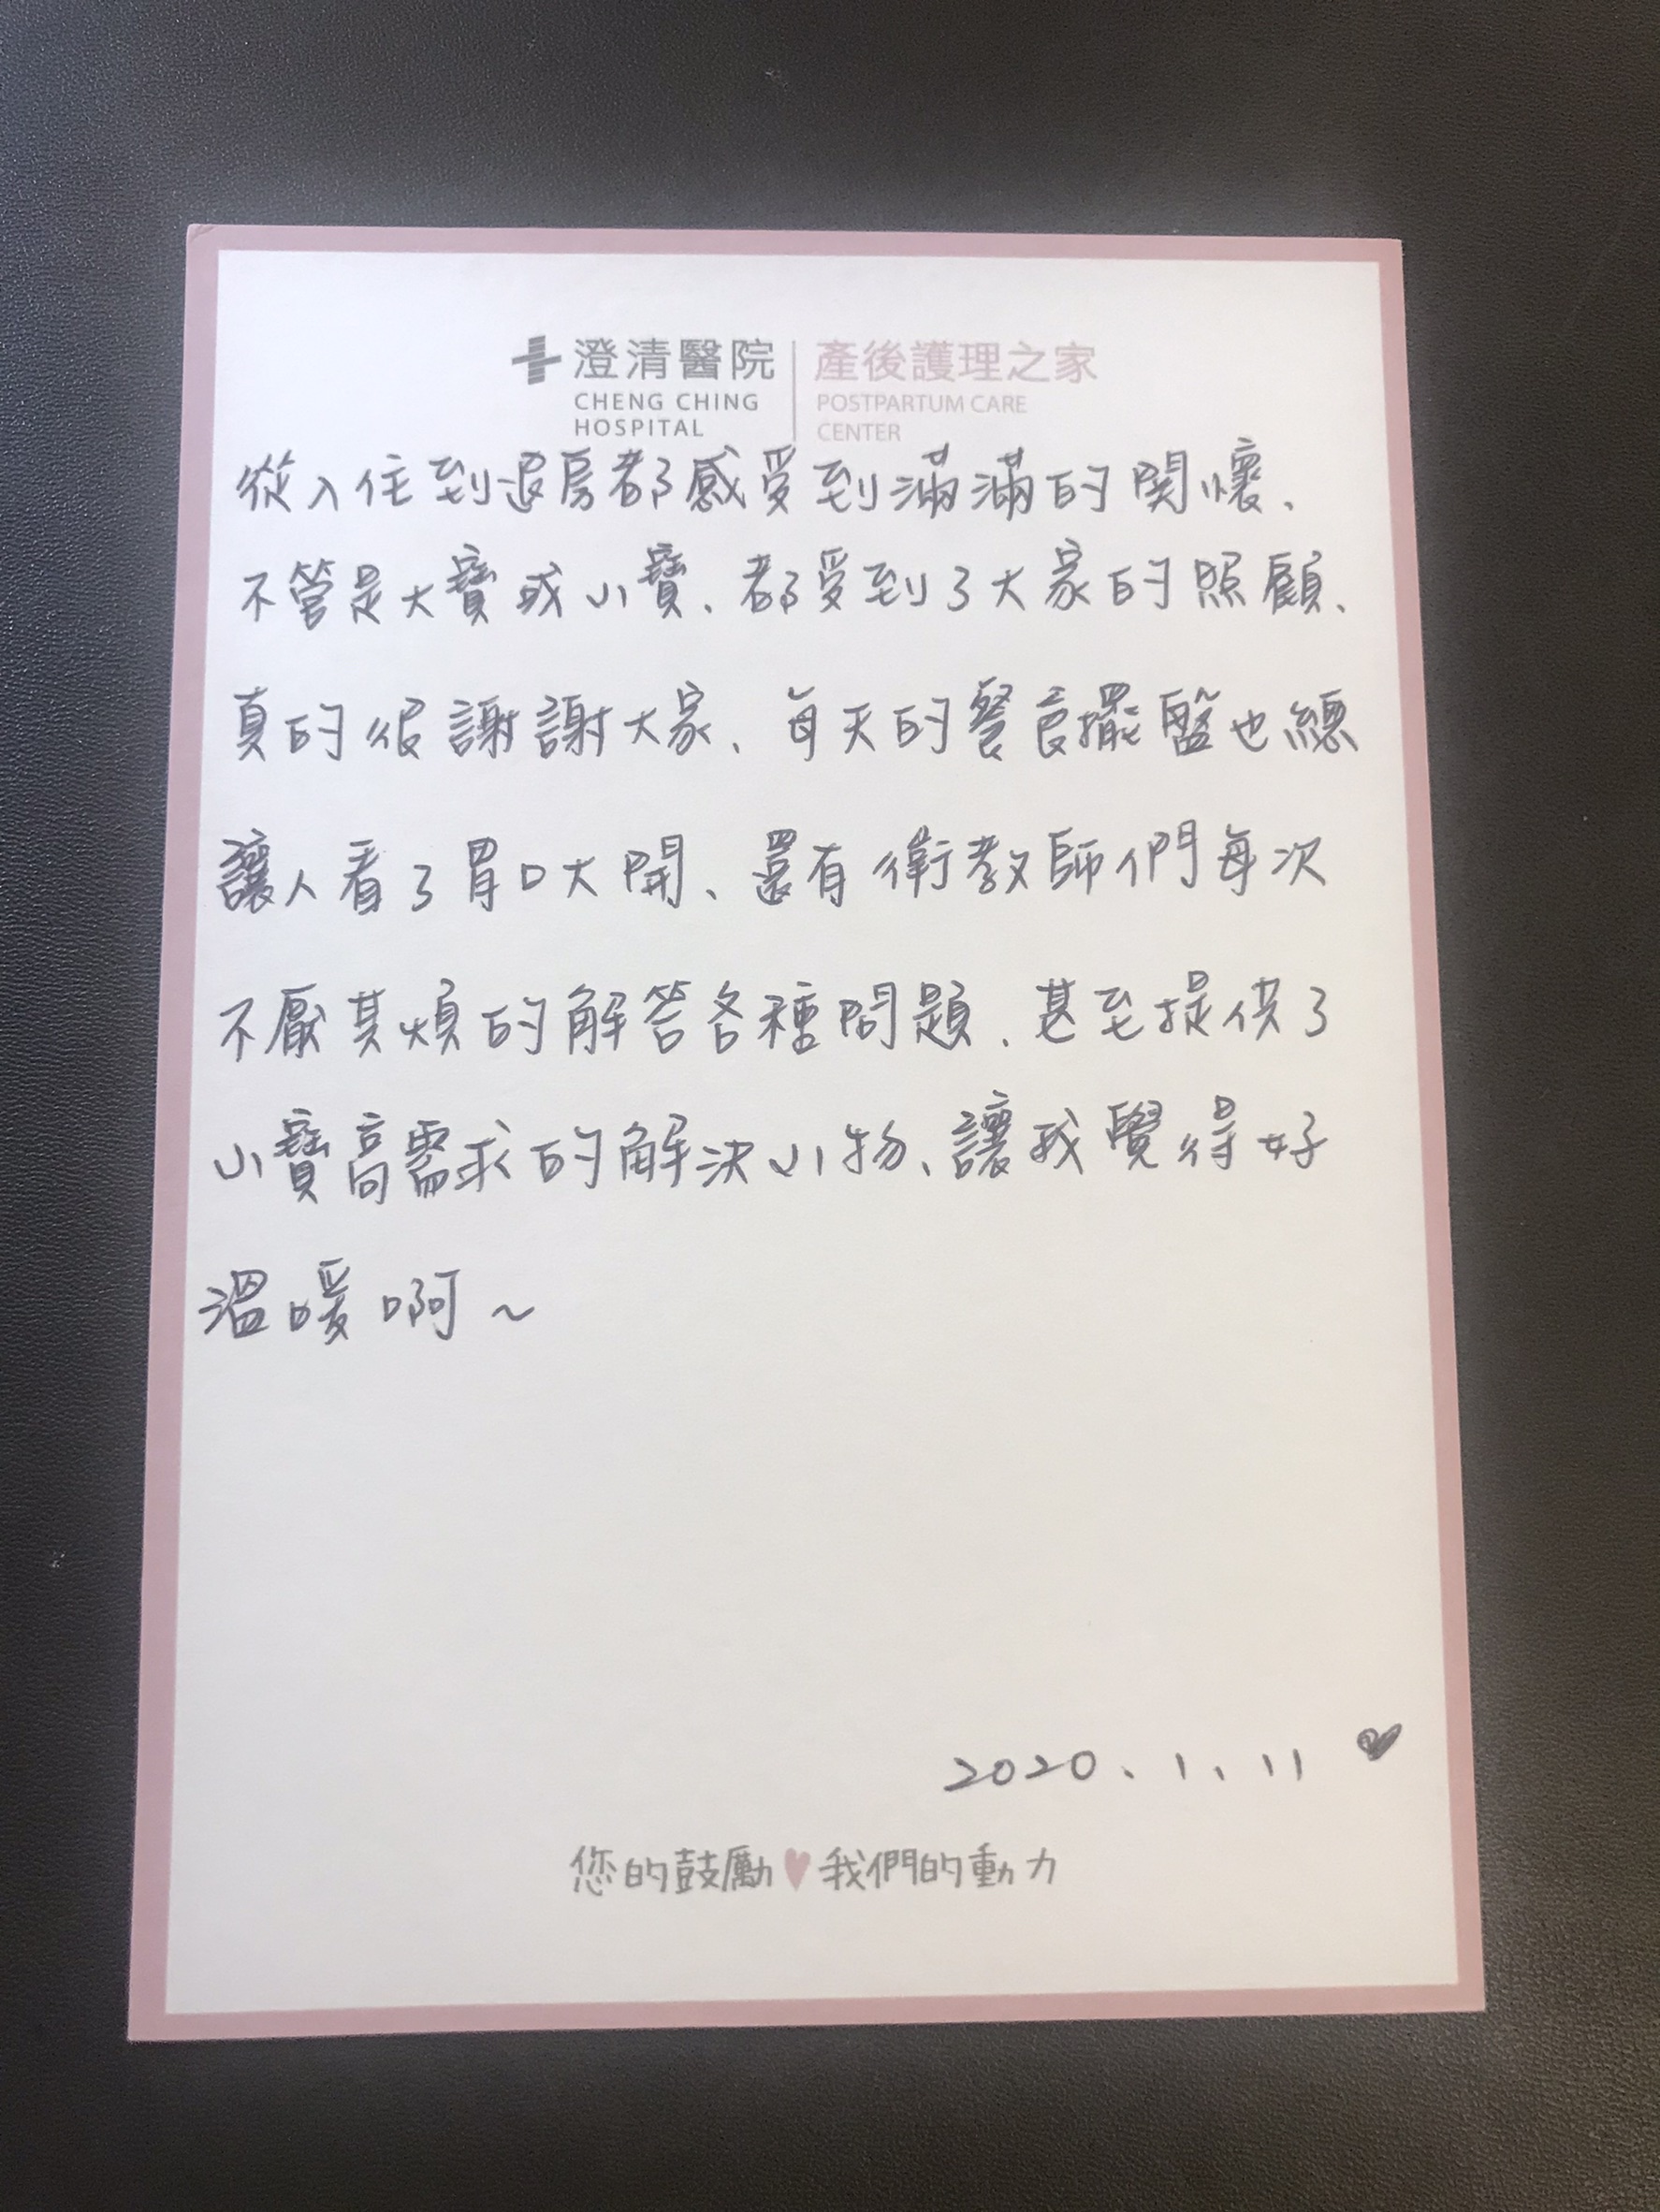 澄清醫院 產後護理之家
CHENG CHING POSTPARTUM CARE
HOSPITAL CENTER
從入住到退房都感受到滿滿的関懷、
不管是大寶或小寶、都受到了大家的照顧、
真的很謝謝大家、每天的餐食擺盤也總
讓人看了胃口大開、還有衛教師們每次
不厭其煩的解答各種問題、甚至提供了
小寶高需求的解決小物、讓我覺得好
溫暖啊~
2020、1、11 ♥
您的鼓勵♥我們的動力